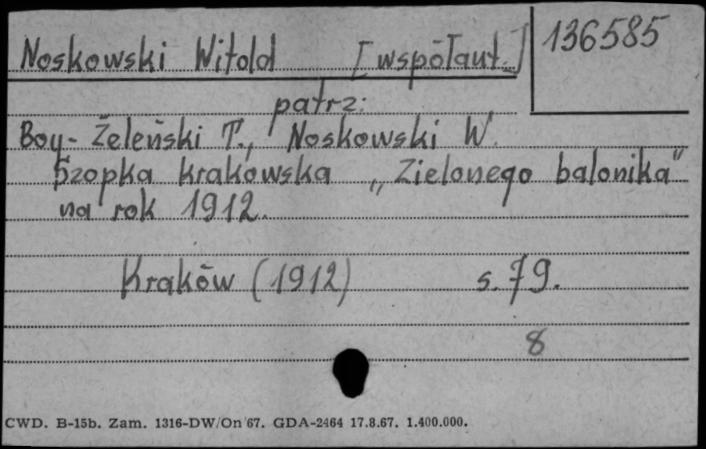 Noskowski Witold [współaut.] 136585
patrz:
Boy-Żeleński T., Noskowski W.
Szopka krakowska „Zielonego balonika”
na rok 1912.
Kraków (1912) s. 79.
8
CWD. B-15b. Zam. 1316-DW/On 67. GDA-2464 17.8.67. 1.400.000.